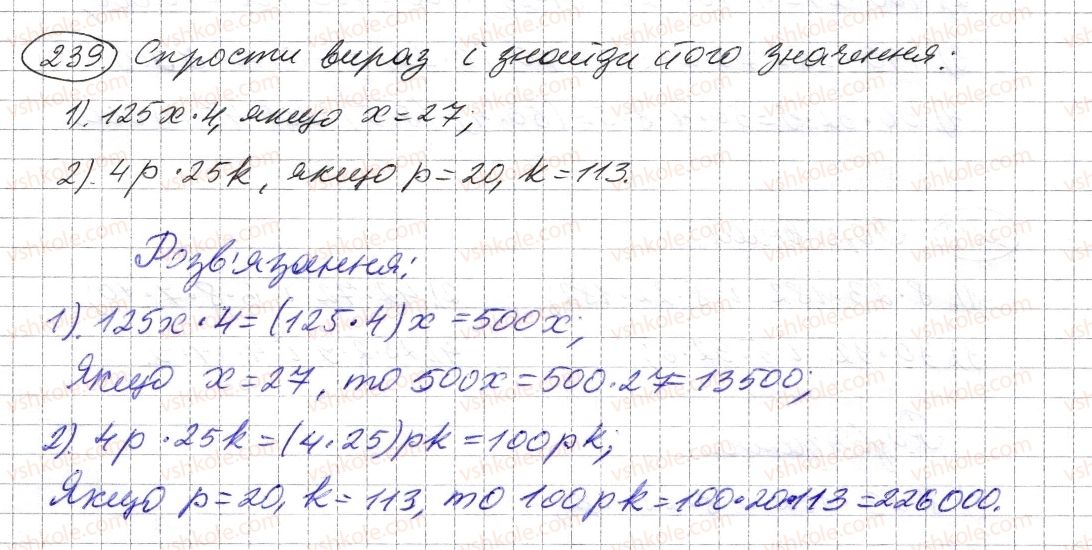 239 Спрости вираз і знайди його значення:
1). 125x·4, якщо x=27;
2). 4p·25k, якщо p=20, k=113.
Розв'язання:
1). 125x·4=(125·4)x=500x;
Якщо x=27, то 500x=500·27=13500;
2). 4p·25k=(4·25)pk=100pk;
Якщо p=20, k=113, то 100pk=100·20·113=226000.